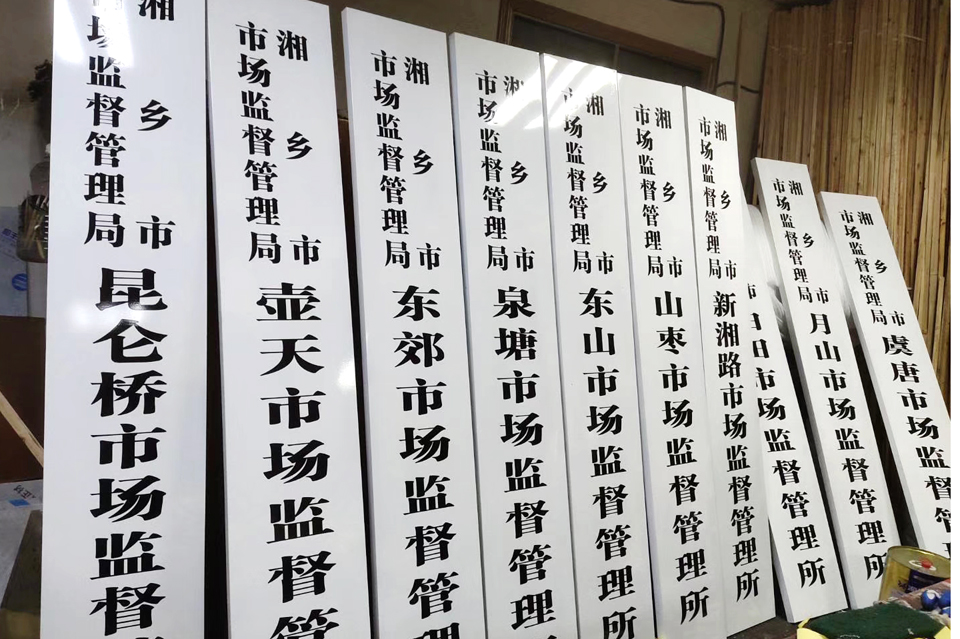 湘乡市
场监督管理局
昆仑桥市场监督
湘乡市
市场监督管理局
壶天市场监督管
湘乡市
市场监督管理局
东郊市场监督管理
湘乡市
市场监督管理局
泉塘市场监督管理
湘乡市
市场监督管理局
东山市场监督管理所
湘乡市
市场监督管理局
山枣市场监督管理所
湘乡市
市场监督管理局
新湘路市场监督管理所
市
市场监督管理所
湘乡市
市场监督管理局
月山市场监督管理所
湘乡市
市场监督管理局
虞唐市场监督管